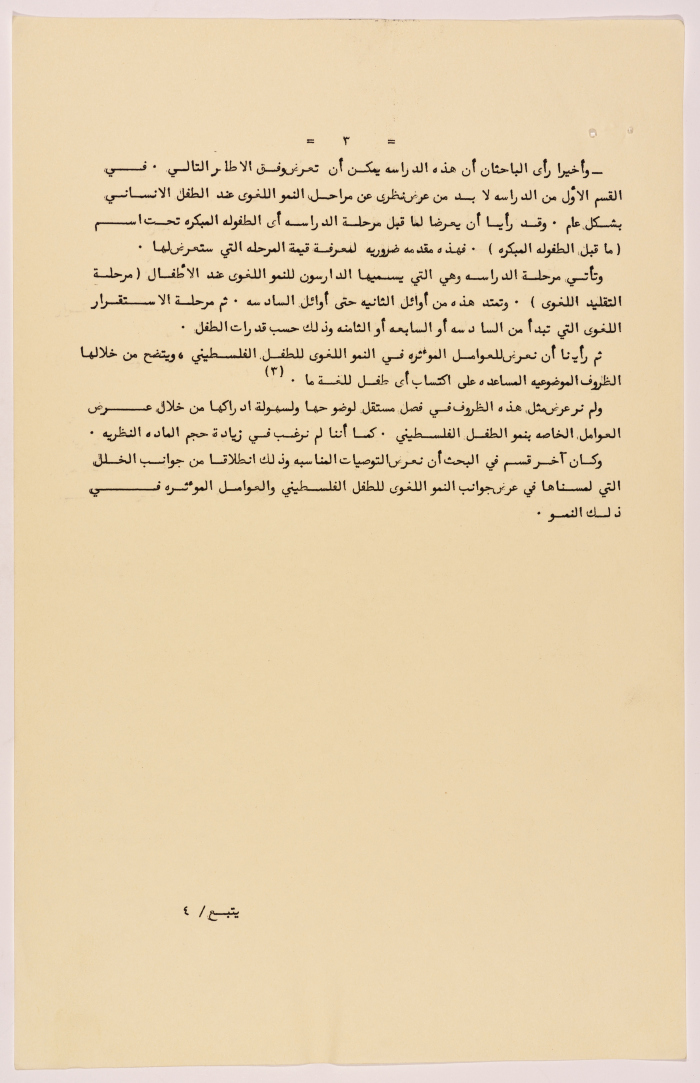 = ٣ =
ـ وأخيرا رأى الباحثان أن هذه الدراسه يمكن أن تعرض وفق الاطار التالي . في
القسم الأول من الدراسه لا بد من عرض نظرى عن مراحل النمو اللغوى عند الطفل الانساني
بشكل عام . وقد رأينا أن يعرضا لما قبل مرحلة الدراسه أى الطفوله المبكره تحت اسم
( ما قبل الطفوله المبكره ) . فهذه مقدمه ضروريه لمعرفة قيمة المرحله التي ستعرض لها .
وتأتي مرحلة الدراسه وهي التي يسميها الدارسون للنمو اللغوى عند الأطفال ( مرحلة
التقليد اللغوى ) . وتمتد هذه من أوائل الثانيه حتى أوائل السادسه . ثم مرحلة الاستقرار
اللغوى التي تبدأ من السادسه أو السابعه أو الثامنه وذلك حسب قدرات الطفل .
ثم رأينا أن نعرض للعوامل الموءثره في النمو اللغوى للطفل الفلسطيني ، ويتضح من خلالها
الظروف الموضوعيه المساعده على اكتساب أى طفل للغة ما . (٣)
ولم نر عرض مثل هذه الظروف في فصل مستقل لوضوحها ولسهولة ادراكها من خلال عرض
العوامل الخاصه بنمو الطفل الفلسطيني . كما أننا لم نرغب في زيادة حجم الماده النظريه .
وكان آخر قسم في البحث أن نعرض التوصيات المناسبه وذلك انطلاقا من جوانب الخلل
التي لمسناها في عرض جوانب النمو اللغوى للطفل الفلسطيني والعوامل الموءثره في
ذلك النمو .
يتبع / ٤